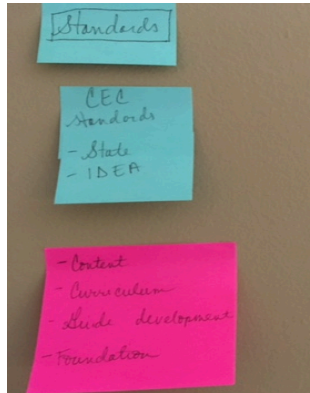 Standards
CEC
standards
- State
- IDEA
- Content
- Curriculum
- Guide development
- Foundation